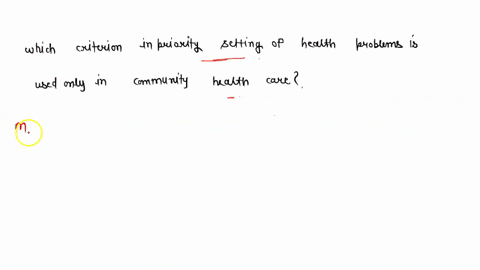 which criterion in priority setting of health problems is
used only in community health care?
M.